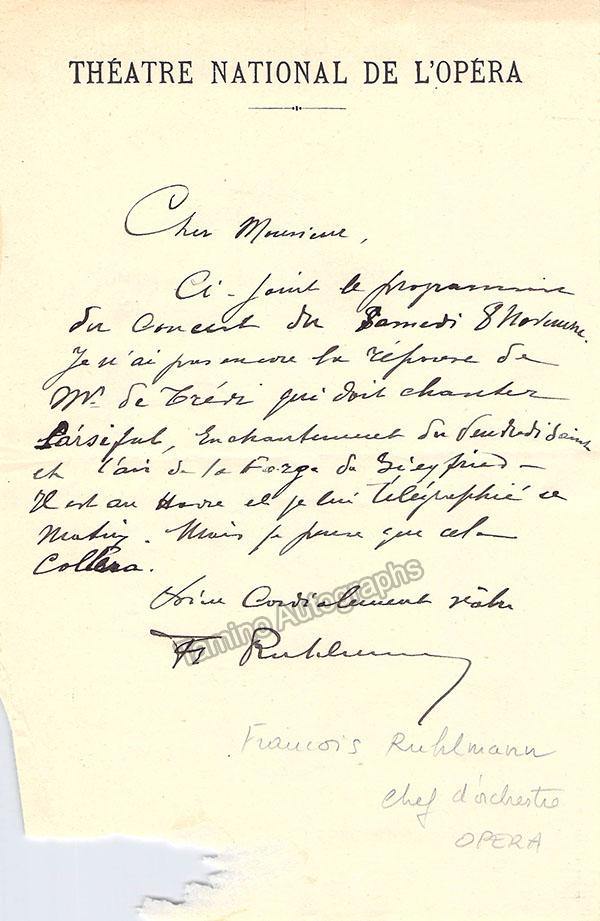 THÉATRE NATIONAL DE L'OPÉRA
Cher Monsieur,
Ci-joint le programme
du Concert du Samedi 8 Novembre.
Je n'ai pas encore la réponse de
Mr de Trédi qui doit chanter
Parsifal, Enchantement du Vendredi Saint
et l'air de la Forge de Siegfried –
Il est au Havre et je lui télégraphie ce
matin. Mais je pense que cela
collera.
Cordialement vôtre
Fs Ruhlmann
Tamino Autographs
Francois Ruhlmann
chef d'orchestre
OPERA